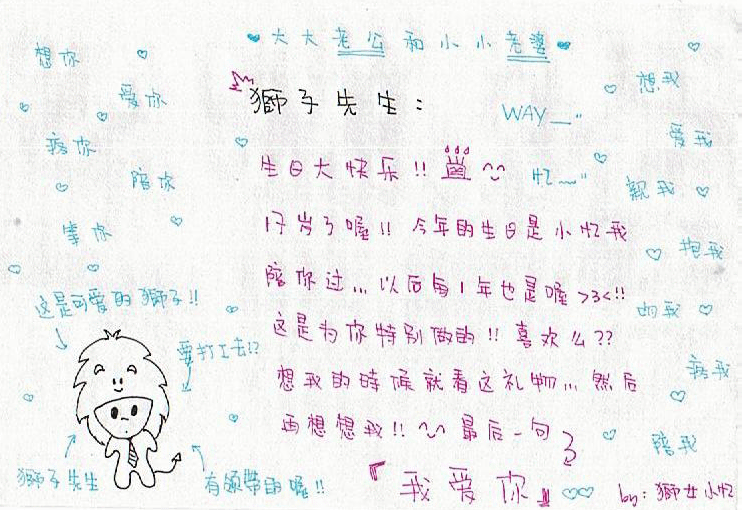 大大老公和小小老婆
獅子先生：
WAY__"
生日大快乐!! ^^
忆~"
17岁了喔!! 今年的生日是小忆我
陪你过... 以后每1年也是喔>3<!!
这是为你特别做的!! 喜欢么??
想我的時候就看这礼物... 然后
再想想我!! ^^ 最后一句
『我爱你』
by: 獅女小忆
想你
爱你
疼你
陪你
拿你
这是可爱的獅子!!
要打工去!?
獅子先生
有领帶的喔!!
想我
爱我
親我
抱我
疼我
陪我